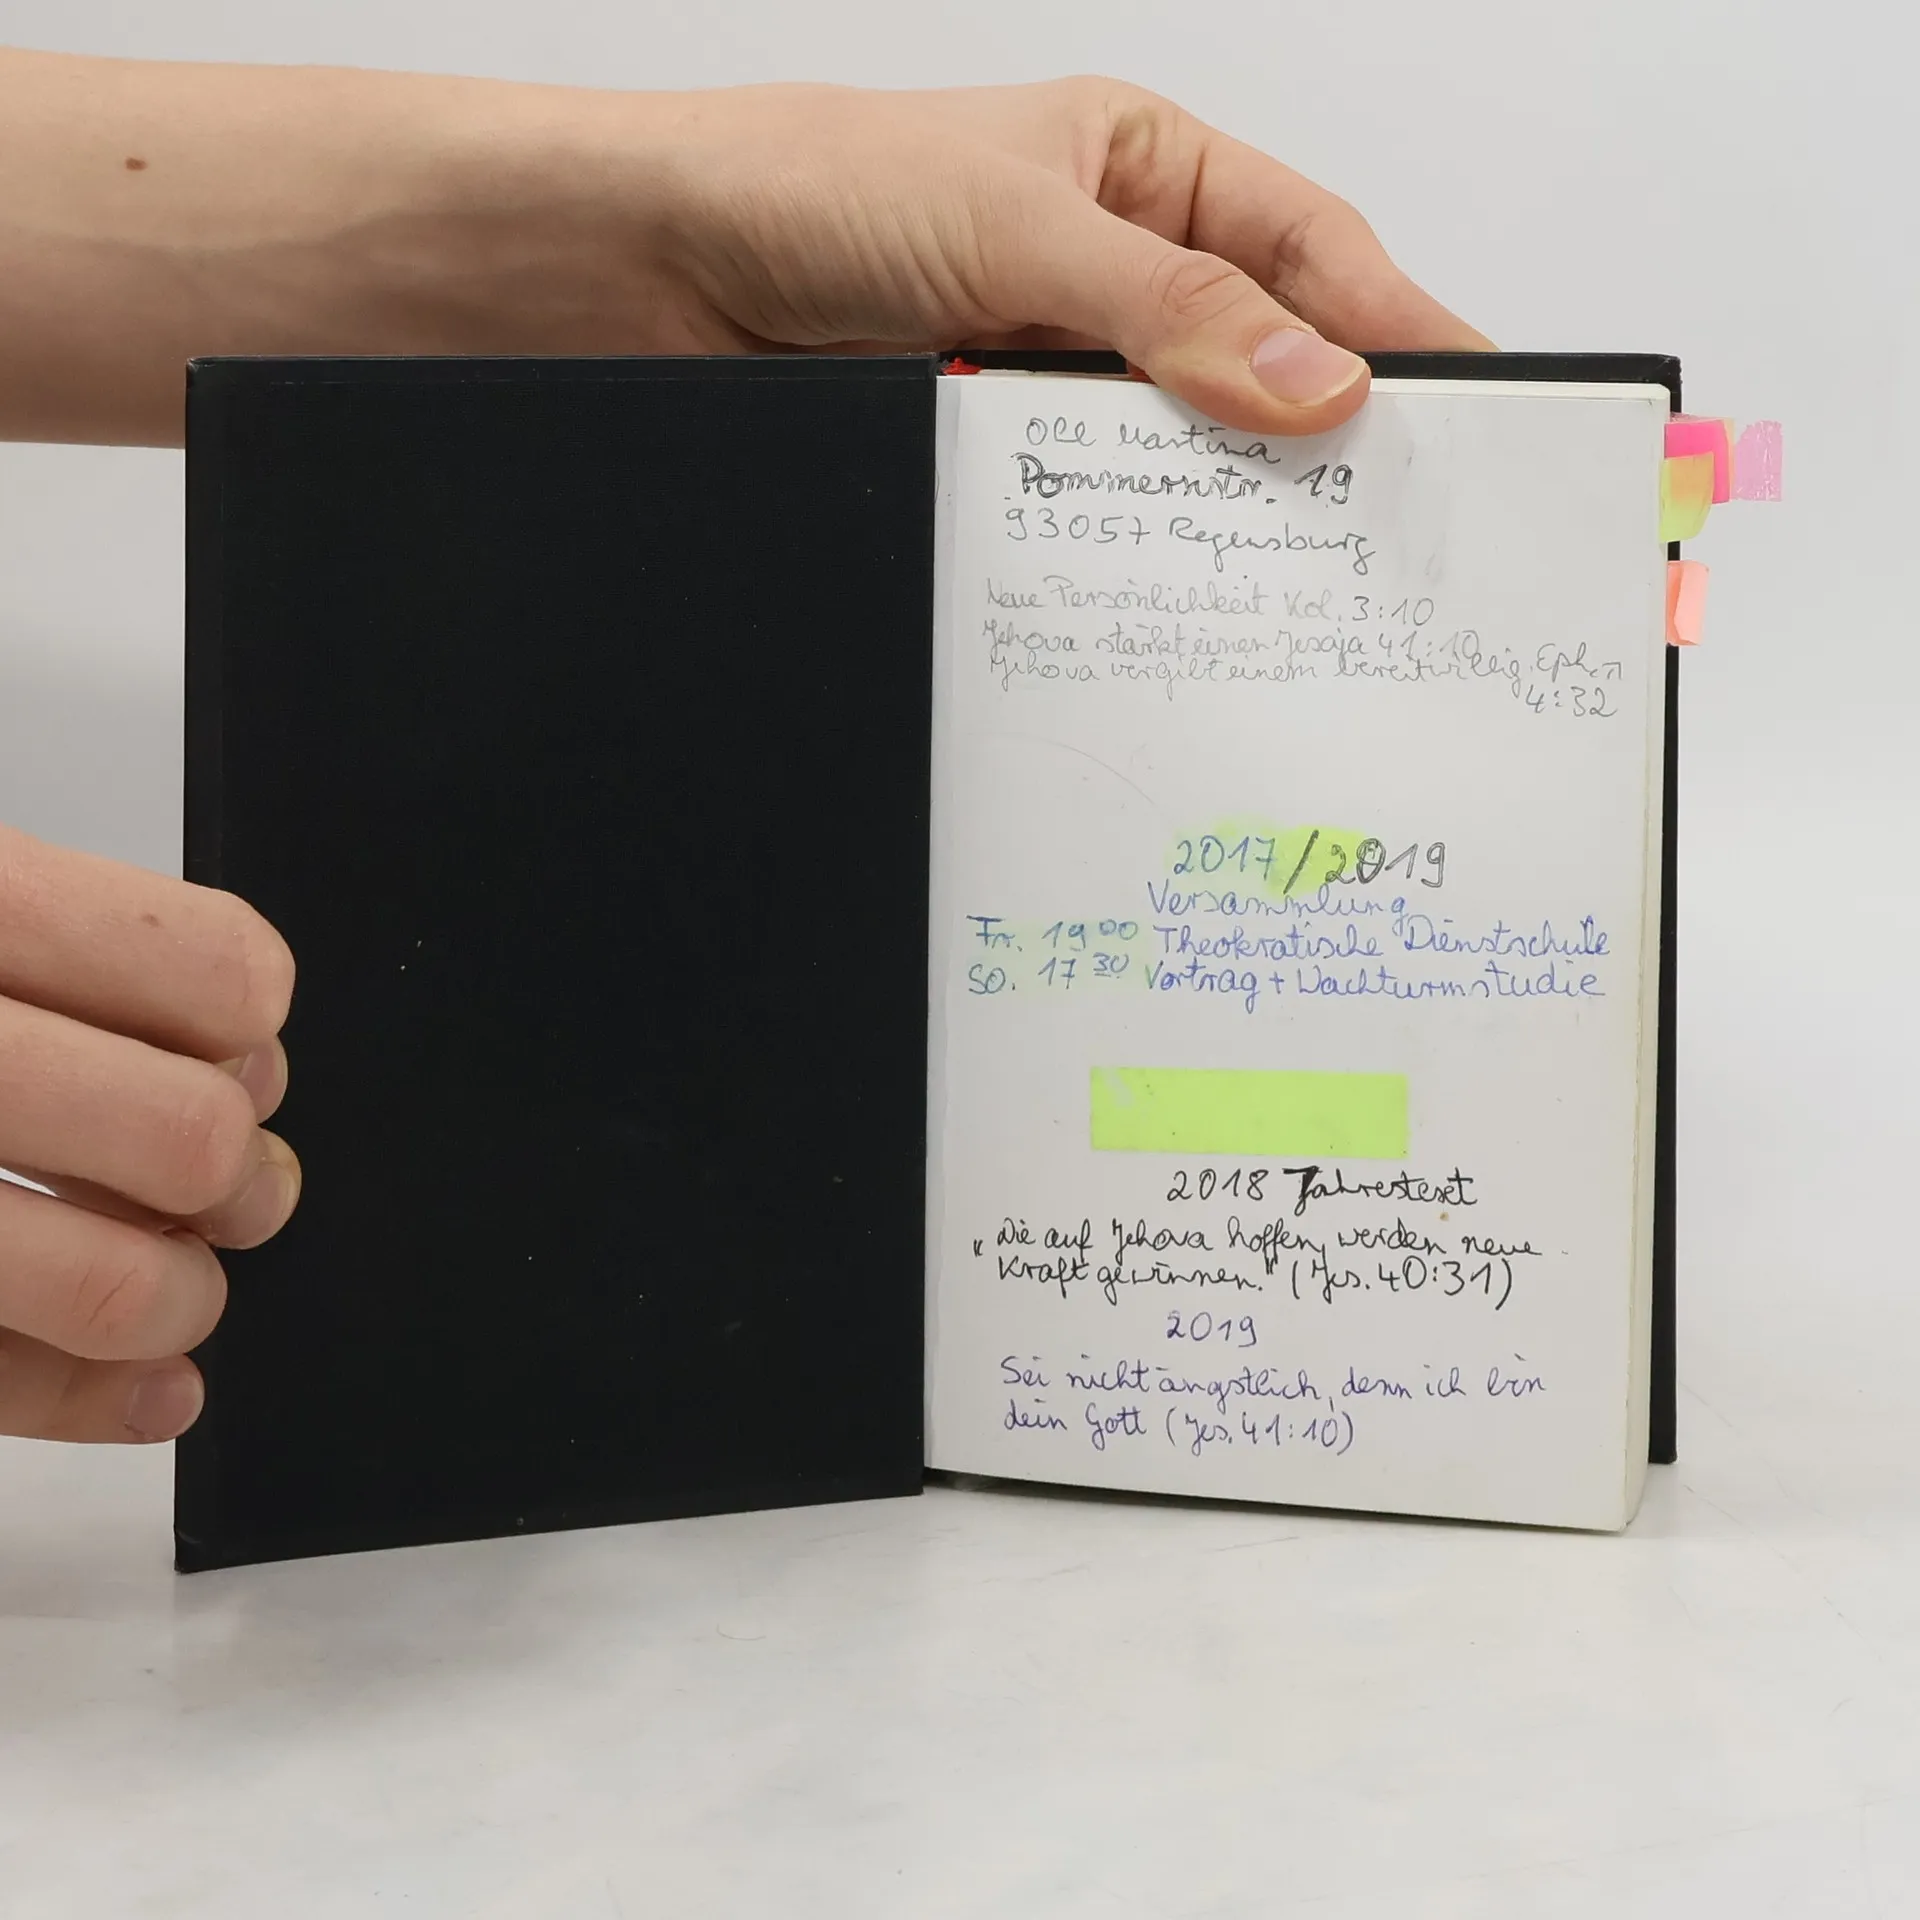 Oll Martina
Pommernstr. 19
93057 Regensburg
Neue Persönlichkeit Kol. 3:10
Jehova stärkt einen Jesaja 41:10
Jehova vergibt einem bereitwillig. Eph.
4:32
2017/2019
Versammlung
Fr. 19 00 Theokratische Dienstschule
So. 17 30 Vortrag + Wachturmstudie
2018 Jahrestext
"Die auf Jehova hoffen, werden neue
Kraft gewinnen." (Jes. 40:31)
2019
Sei nicht ängstlich, denn ich bin
dein Gott (Jes. 41:10)